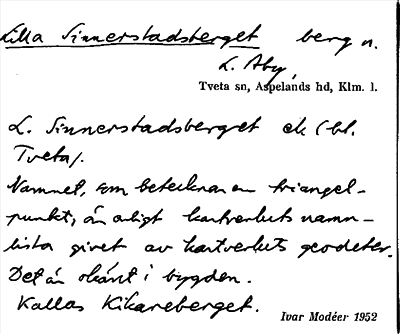 Lilla Sinnerstadsberget berg n.
L. Aby
Tveta sn, Aspelands hd, Klm. l.
L. Sinnerstadsberget ek (bl.
Tveta).
Namnet, som betecknar en triangel-
punkt, är enligt kartverkets namn-
lista givet av kartverkets geodeter.
Det är okänt i bygden.
Kallas Kikareberget.
Ivar Modéer 1952